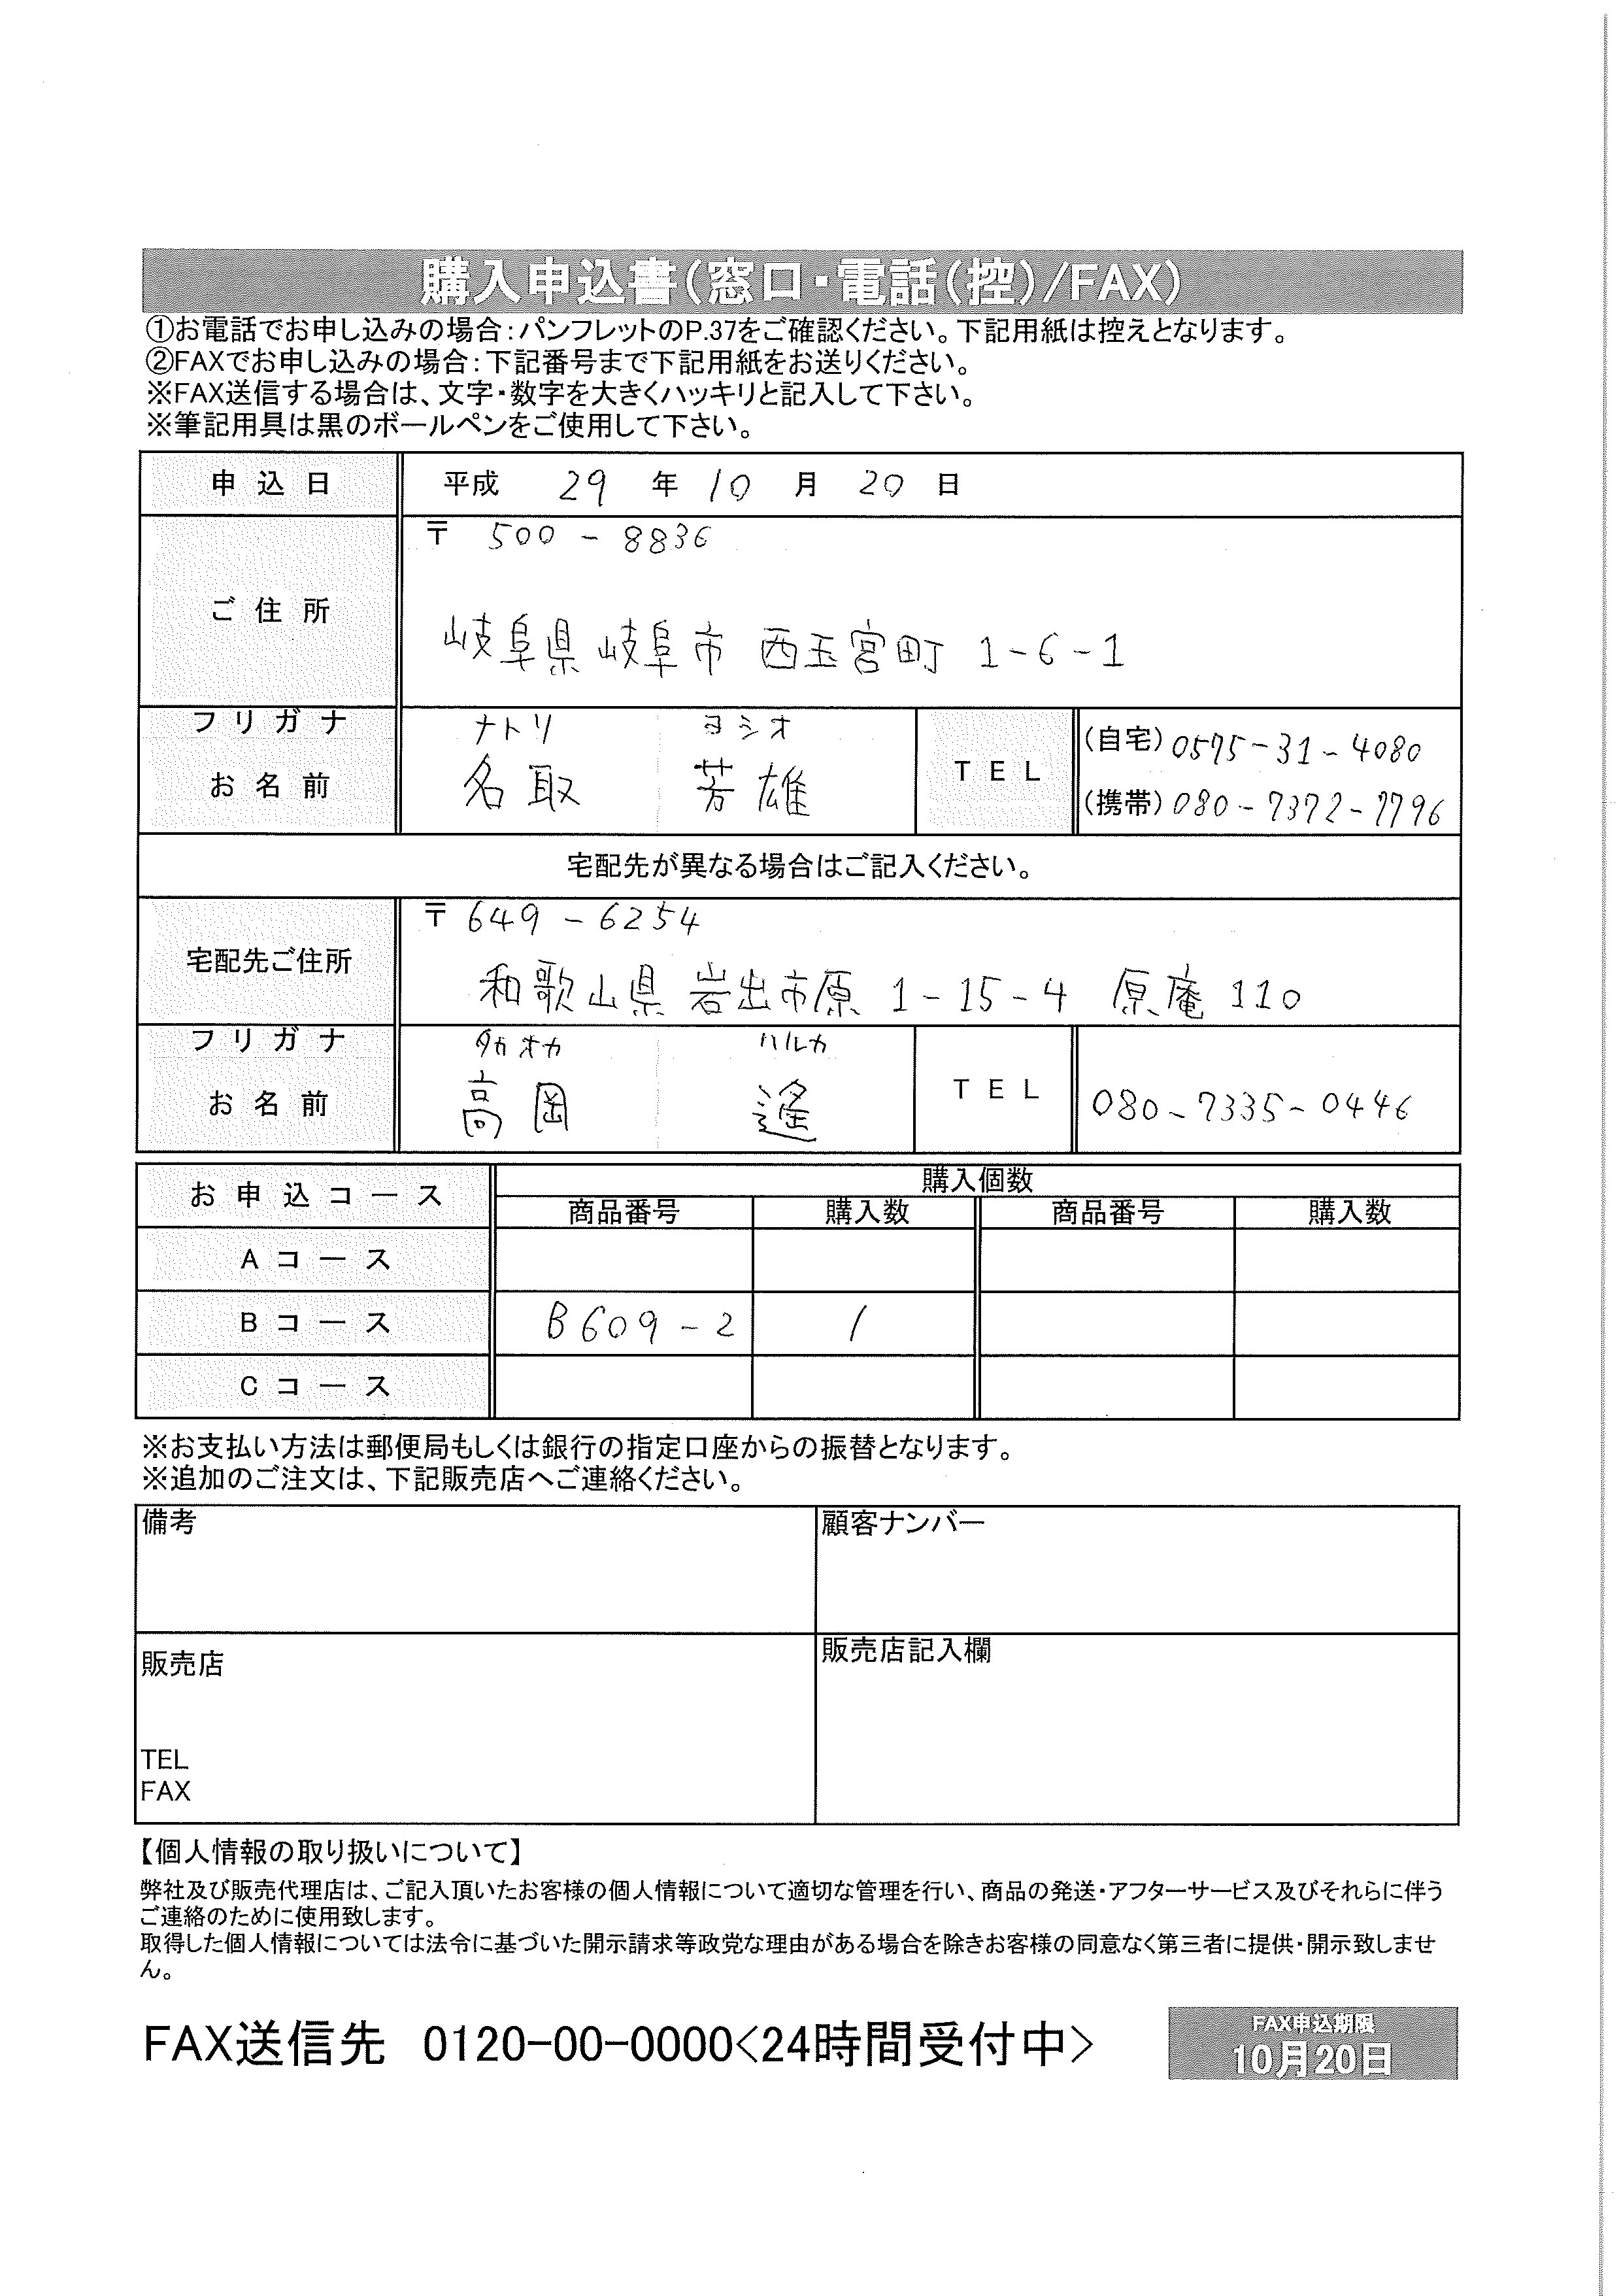 購入申込書(窓口・電話(控)/FAX)
①お電話でお申し込みの場合:パンフレットのP.37をご確認ください。下記用紙は控えとなります。
②FAXでお申し込みの場合:下記番号まで下記用紙をお送りください。
※FAX送信する場合は、文字・数字を大きくハッキリと記入して下さい。
※筆記用具は黒のボールペンをご使用して下さい。
申込日 平成 29 年 10 月 20 日
〒 500-8836
ご住所
岐阜県岐阜市 西玉宮町 1-6-1
フリガナ ナトリ ヨシオ
お名前 名取 芳雄
TEL
(自宅) 0575-31-4080
(携帯) 080-7372-7796
宅配先が異なる場合はご記入ください。
〒 649-6254
宅配先ご住所
和歌山県 岩出市原 1-15-4 原庵 110
フリガナ タカオカ ハルカ
お名前 高岡 遙
TEL 080-7335-0446
お申込コース 購入個数
商品番号 購入数 商品番号 購入数
Aコース
Bコース B609-2 1
Cコース
※お支払い方法は郵便局もしくは銀行の指定口座からの振替となります。
※追加のご注文は、下記販売店へご連絡ください。
備考 顧客ナンバー
販売店 販売店記入欄
TEL
FAX
【個人情報の取り扱いについて】
弊社及び販売代理店は、ご記入頂いたお客様の個人情報について適切な管理を行い、商品の発送・アフターサービス及びそれらに伴う
ご連絡のために使用致します。
取得した個人情報については法令に基づいた開示請求等政党な理由がある場合を除きお客様の同意なく第三者に提供・開示致しませ
ん。
FAX送信先 0120-00-0000<24時間受付中>
FAX申込期限
10月20日